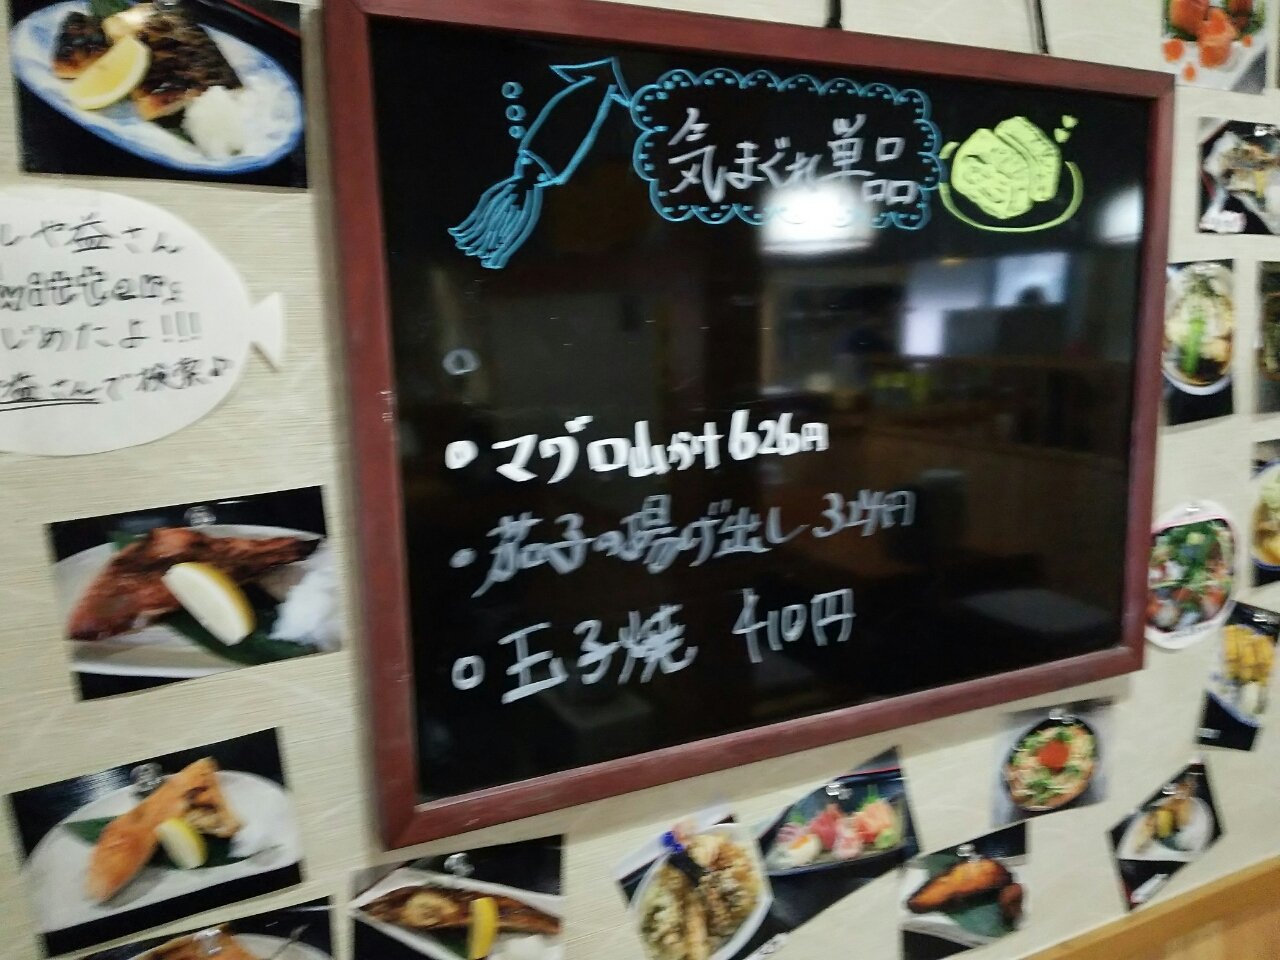 気まぐれ単品
マグロ山かけ 626円
茄子の揚げ出し 324円
玉子焼 410円
しや益さん
witter
じめたよ!!!
益さんで検索♪